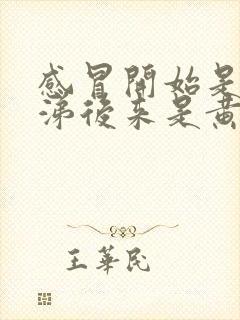 感冒開始是
涕後來是黃
王華民